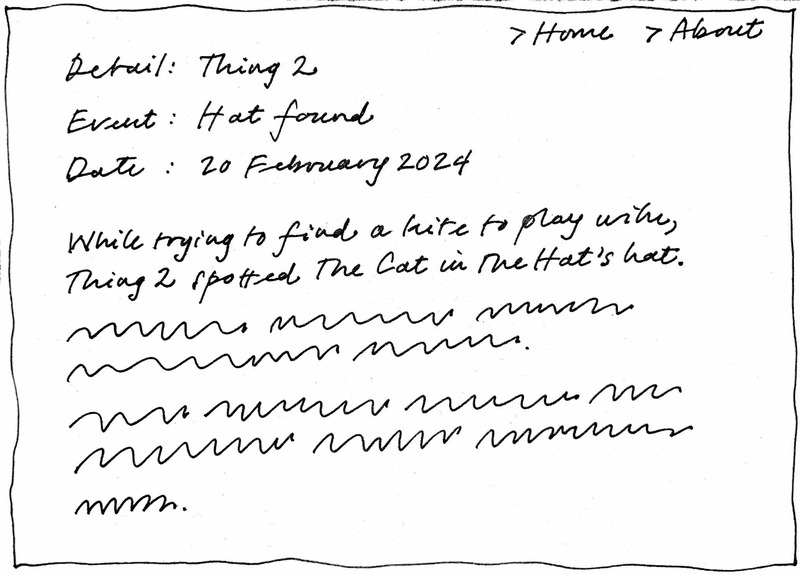 > Home > About
Detail: Thing 2
Event: Hat found
Date : 20 February 2024
While trying to find a kite to play with,
Thing 2 spotted The Cat in The Hat's hat.